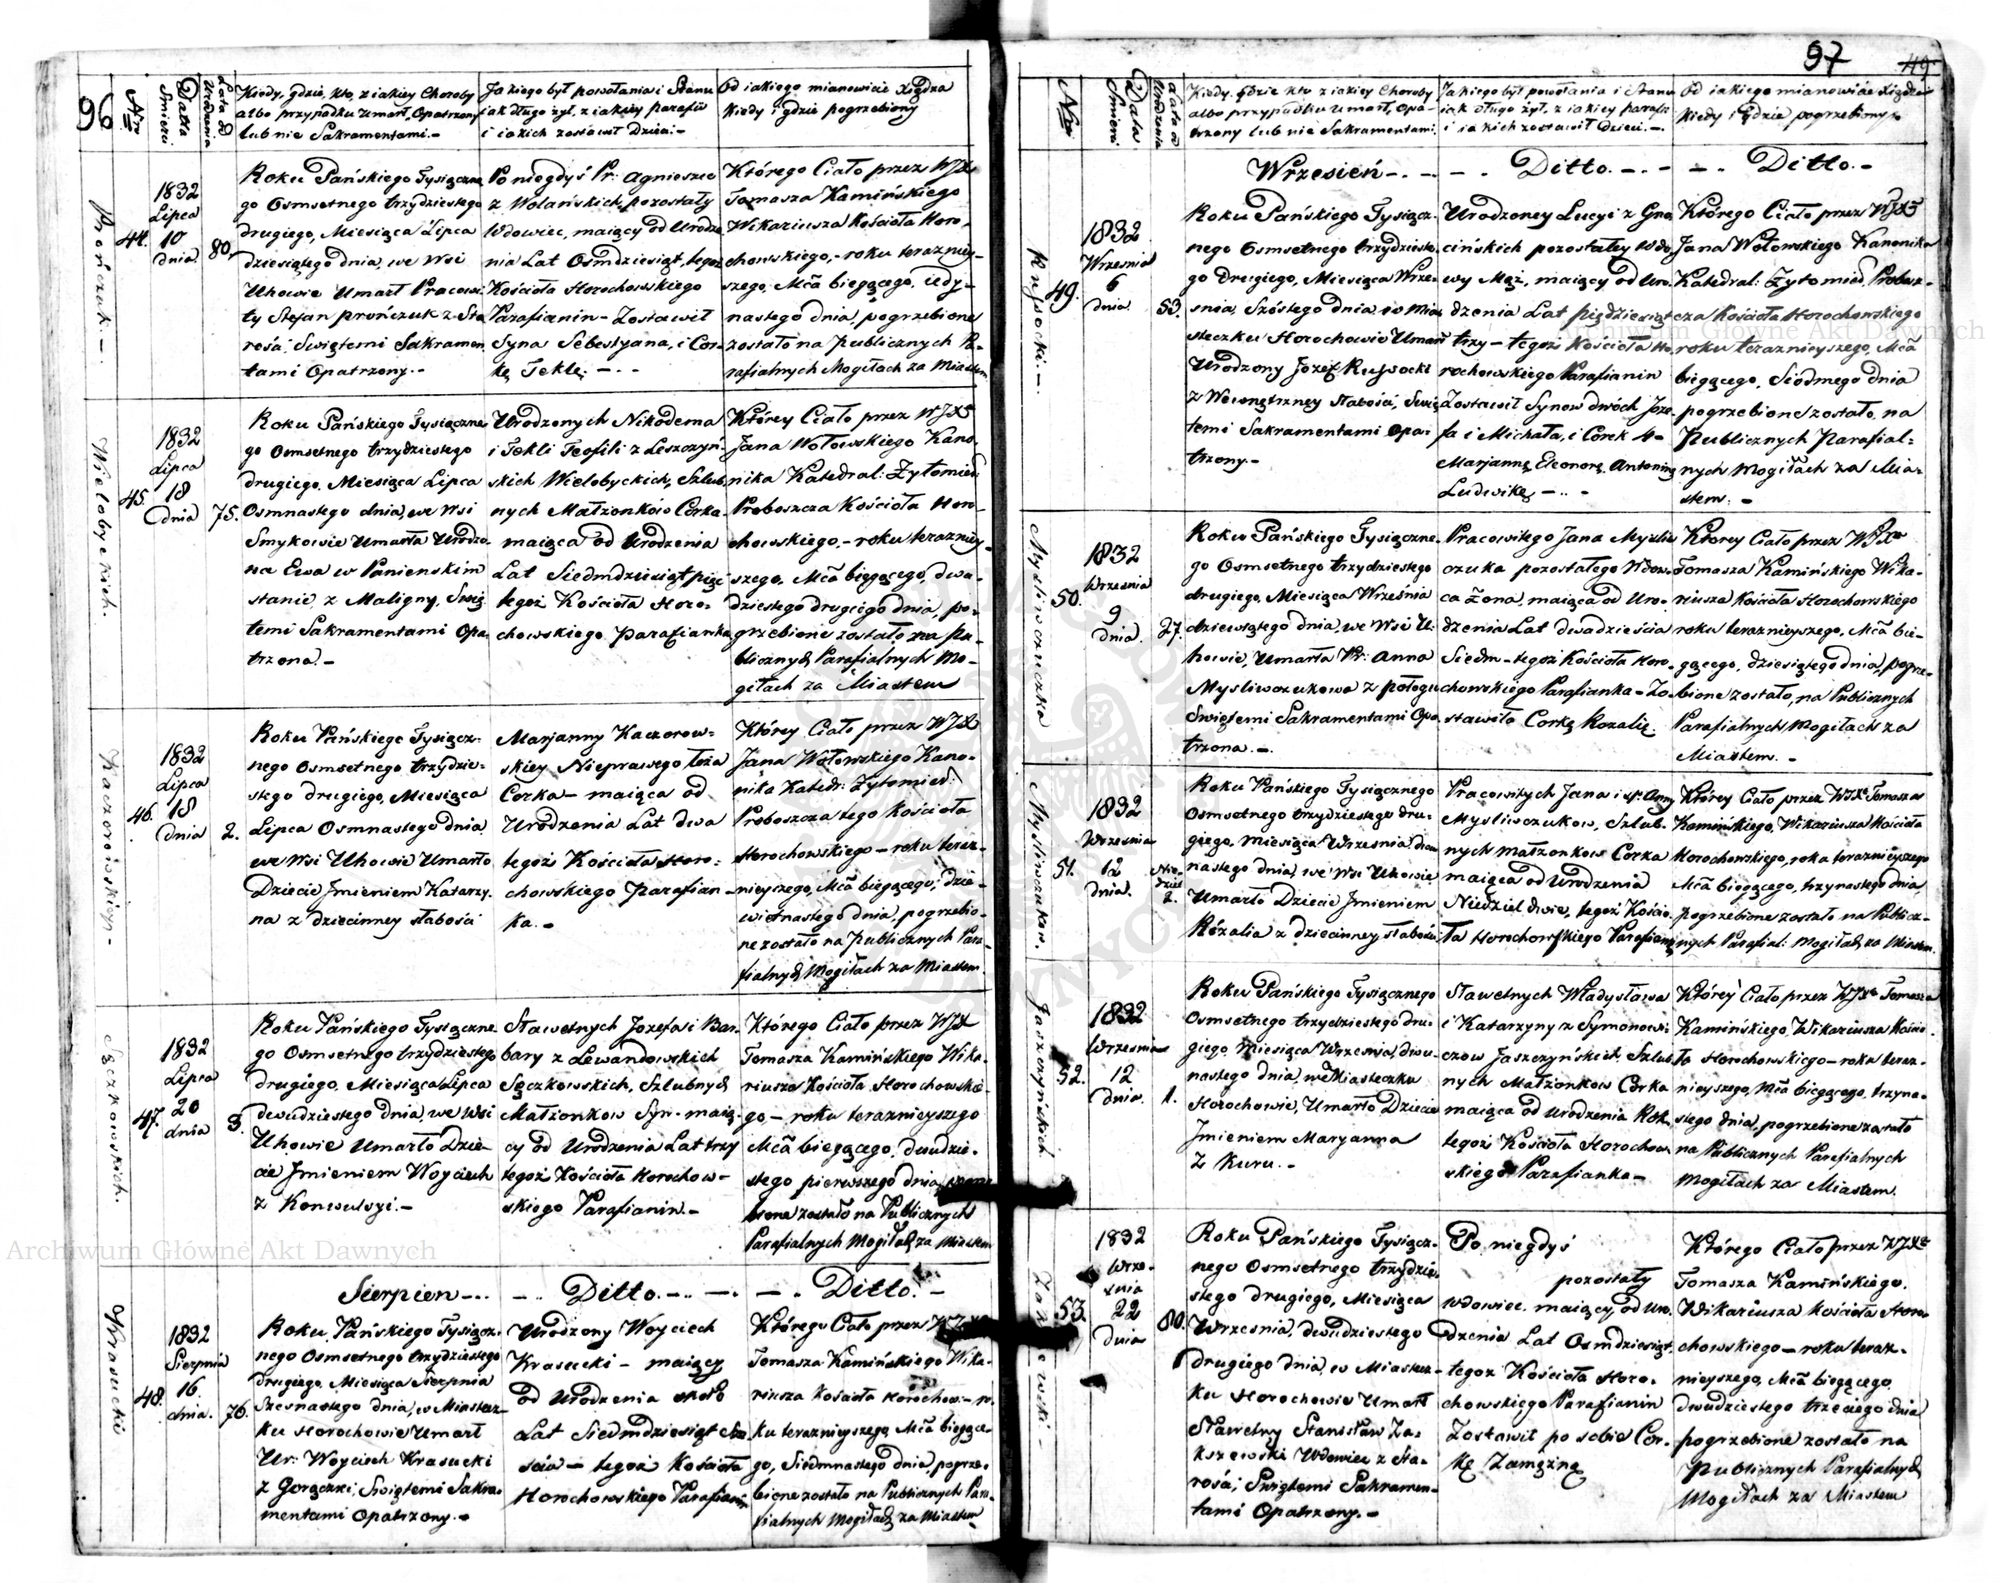 96
Nr
Datta Smierci
Lata od Urodzenia
Kiedy, gdzie, kto, z iakiey Choroby
albo przypadku umarł, Opatrzony
lub nie Sakramentami.-
Jakiego był powołania i Stanu
iak długo żył, z iakiey parafii
i iakich zostawił Dzieci.-
Od iakiego mianowicie Xiędza
Kiedy i gdzie pogrzebiony
Prończuk.-
44.
1832
Lipca
10
dnia
80.
Roku Pańskiego Tysiączne
go Osmsetnego trzydziestego
drugiego, Miesiąca Lipca
dziesiątego dnia, we Wsi
Uhowie Umarł Pracowi
ty Stefan prończuk z Sta
rości, Swiętemi Sakramen
tami Opatrzony.-
Po niegdyś Pr: Agnieszce
z Wolańskich, pozostały
Wdowiec, maiący od Urodze
nia Lat Osmdziesiąt, tegoż
Kościoła Horochowskiego
Parafianin - Zostawił
Syna Sebestyana, i Cor-
kę Teklę. -.-
Którego Ciało przez WJX
Tomasza Kamińskiego
Wikariusza Kościoła Horo,
chowskiego, - roku teraźniey-
szego, Mcã biegącego, iedy-
nastego dnia, pogrzebione
zostało na publicznych Pa-
rafialnych Mogiłach za Miastem
Wielobyckich.
45.
1832
Lipca
18
dnia
75.
Roku Pańskiego Tysiączne
go Osmsetnego trzydziestego
drugiego, Miesiąca Lipca
Osmnastego dnia, we Wsi
Smykowie Umarła Urodzo
na Ewa w Panienskim
stanie, z Maligny, Swię
temi Sakramentami Opa
trzona.-
Urodzonych Nikodema
i Tekli Teofili z Leszczyń
skich Wielobyckich, Szlub
nych Małżonków Corka
maiąca od Urodzenia
Lat Siedmdziesiąt pięć
tegoż Kościoła Horo-
chowskiego Parafianka
Którey Ciało przez WJXa
Jana Wołowskiego Kano
nika Katedral: Żytomier:
Proboszcza Kościoła Horo
chowskiego, - roku teraźniey-
szego, Mcã biegącego, dwu-
dziestego drugiego dnia, po-
grzebione zostało, na pu-
blicznych Parafialnych Mo-
giłach za Miastem
Kaczorowskiey.-
46.
1832
Lipca
18
dnia
2.
Roku Pańskiego Tysiącz-
nego Osmsetnego trzydzie-
stego drugiego, Miesiąca
Lipca Osmnastego dnia,
we Wsi Uhowie Umarło
Dziecie Jmieniem Katarzy-
na z dziecinney słabości
Marjanny Kaczorow-
skiey Nieprawego łoża
Corka - maiąca od
Urodzenia Lat dwa
tegoż Kościoła Horo-
chowskiego Parafian-
ka.-
Którey Ciało przez WJX
Jana Wołowskiego Kano-
nika Katedr: Żytomier:
Proboszcza tego Kościoła
Horochowskiego - roku teraź-
nieyszego, Mcã biegącego, dzie-
wietnastego dnia, pogrzebio-
ne zostało na publicznych Para-
fialnych Mogiłach za Miastem.
Sączkowskich.
47.
1832
Lipca
20
dnia
3.
Roku Pańskiego Tysiączne
go Osmsetnego trzydziestego
drugiego, Miesiąca Lipca
dwudziestego dnia, we Wsi
Uhowie Umarło Dzie-
cie Jmieniem Woyciech
z Konwulsyi.-
Sławetnych Jozefa i Bar-
bary z Lewandowskich
Sączkowskich, Szlubnych
Małżonkow Syn - maią-
cy od Urodzenia Lat trzy
tegoż Kościoła Horochow-
skiego Parafianin.-
Którego Ciało przez WJX
Tomasza Kamińskiego Wika-
riusza Kościoła Horochowskie
go - roku teraźnieyszego
Mcã biegącego, dwudzie-
stego pierwszego dnia, pogrze
bione zostało na Publicznych
Parafialnych Mogiłach za Miastem
Sierpien -.- -.- Ditto.-.- -.- Ditto.-
Krasucki
48.
1832
Sierpnia
16.
dnia.
76.
Roku Pańskiego Tysiącz-
nego Osmsetnego trzydziestego
drugiego, Miesiąca Sierpnia
Szesnastego dnia, w Miastecz-
ku Horochowie Umarł
Ur: Woyciech Krasucki
z Gorączki, Swiętemi Sakra-
mentami Opatrzony.-
Urodzony Woyciech
Krasucki - maiący
od Urodzenia około
Lat Siedmdziesiąt sze
ścia - tegoż Kościoła
Horochowskiego Parafianin
Którego Ciało przez WJX
Tomasza Kamińskiego Wika-
riusza Kościoła Horochow:- ro-
ku teraźnieyszego, Mcã biegące-
go, Siedmnastego dnia, pogrze-
bione zostało na Publicznych Para-
fialnych Mogiłach za Miastem
97
49
Nr
Data Smierci
Lata od Urodzenia
Kiedy, gdzie, kto z iakiey Choroby
albo przypadku umarł, opa-
trzony lub nie Sakramentami.
Jakiego był powołania i Stanu
iak długo żył, z iakiey parafii
i iakich zostawił dzieci.-
Od iakiego mianowicie Xiędza
Kiedy i gdzie pogrzebiony
Wrzesień -.- -.- Ditto.-.- -.- Ditto.-
Russocki.-
49.
1832
Wrzesnia
6
dnia
53.
Roku Pańskiego Tysiącz-
nego Osmsetnego trzydzieste
go Drugiego, Miesiąca Wrze-
snia, Szóstego dnia, w Mia
steczku Horochowie Umarł
Urodzony Jozef Russocki
z Wewnętrzney słabości, Swię
temi Sakramentami Opa-
trzony.-
Urodzoney Lucyi z Gno
cińskich pozostałey Wdo
wy Mąż, maiący od Uro
dzenia Lat pięćdziesiąt
trzy - tegoż Kościoła Ho
rochowskiego Parafianin
Zostawił Synow dwóch Joze-
fa i Michała, i Corek 4-
Marjannę, Eleonorę, Antoninę
Ludwikę, -.-
Którego Ciało przez WJXa
Jana Wołowskiego Kanonika
Katedral: Żytomier: Probosz-
cza Kościoła Horochowskiego
roku teraźnieyszego, Mcã
biegącego, Siódmego dnia
pogrzebione zostało, na
Publicznych Parafial-
nych Mogiłach za Mia-
stem.-
Mysliwczuczka
50.
1832
Wrzesnia
9
dnia.
27.
Roku Pańskiego Tysiączne-
go Osmsetnego trzydziestego
drugiego, Miesiąca Września
dziewiątego dnia, we Wsi U-
howie, Umarła Pr: Anna
Mysliwczukowa z połogu
Swiętemi Sakramentami Opa
trzona.-
Pracowitego Jana Mysliw
czuka pozostałego Wdow-
ca Żona, maiąca od Uro-
dzenia Lat dwadzieścia
Siedm - tegoż Kościoła Horo-
chowskiego Parafianka - Zo-
stawiła Corkę Rozalię.
Którey Ciało przez WJXa
Tomasza Kamińskiego Wika-
riusza Kościoła Horochowskiego
roku teraźnieyszego, Mcã bie-
gącego, dziesiątego dnia, pogrze-
bione zostało, na Publicznych
Parafialnych Mogiłach za
Miastem.-
Mysliwczukow.
51.
1832
Wrzesnia
12
dnia.
Nie-
dziel
2.
Roku Pańskiego Tysiącznego
Osmsetnego trzydziestego dru-
giego, Miesiąca Wrzesnia dwu
nastego dnia, we Wsi Uhowie
Umarło Dziecie Jmieniem
Rózalia z dziecinney słabości
Pracowitych Jana i śp: Anny
Mysliwczukow, Szlub-
nych małżonkow Corka
maiąca od Urodzenia
Niedziel dwie, tegoż Kościo-
ła Horochowskiego Parafianką
Którey Ciało przez WJXa Tomasza
Kamińskiego, Wikariusza Kościoła
Horochowskiego, roku teraźnieyszego
Mcã biegącego, trzynastego dnia
pogrzebione zostało na Publicz-
nych Parafial: Mogiłach za Miastem
Jaszczyńskich
52.
1832
Wrzesnia
12
dnia.
1.
Roku Pańskiego Tysiącznego
Osmsetnego trzydziestego dru-
giego, Miesiąca Wrzesnia, dwu-
nastego dnia, w Miasteczku
Horochowie, Umarło Dziecie
Jmieniem Maryanna
Z Kuru.-
Sławetnych Władysława
i Katarzyny z Symonowi-
czow Jaszczyńskich, Szlub
nych Małżonkow Corka
maiąca od Urodzenia Rok,
tegoż Kościoła Horochow
skiego Parafianka-
Którey Ciało przez WJXa Tomasza
Kamińskiego, Wikariusza Kościo
ła Horochowskiego - roku teraź-
nieyszego, Mcã biegącego, trzyna-
stego dnia, pogrzebione zostało
na Publicznych Parafialnych
Mogiłach za Miastem.
53.
1832
Wrze-
śnia
22
dnia
80.
Roku Pańskiego Tysiącz-
nego Osmsetnego trzydzie-
stego drugiego, Miesiąca
Wrzesnia, dwudziestego
drugiego dnia, w Miastecz-
ku Horochowie Umarł
Sławetny Stanisław Za-
kszewski Wdowiec z sta-
rości; Swiętemi Sakramen-
tami Opatrzony.-
Po niegdyś
pozostały
wdowiec, maiący od Uro-
dzenia Lat Osmdziesiąt,
tegoż Kościoła Horo-
chowskiego Parafianin
Zostawił po sobie Cor-
kę Zamężną
Którego Ciało przez WJXa
Tomasza Kamińskiego,
Wikariusza Kościoła Horo-
chowskiego - roku teraz-
nieyszego, Mcã biegącego
dwudziestego trzeciego dnia
pogrzebione zostało na
Publicznych Parafialnych
Mogiłach za Miastem
Archiwum Główne Akt Dawnych
Archiwum Główne Akt Dawnych